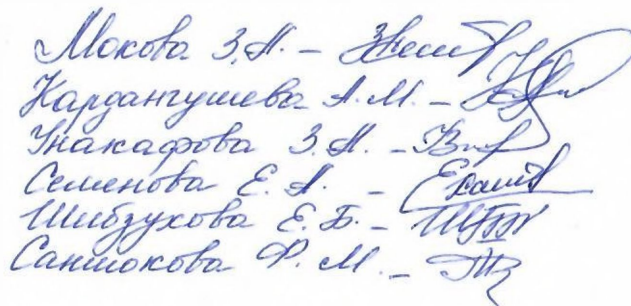 Мокова З.Н. –
Кардангушева А.М. –
Унакафова З.Н. –
Семенова Е.А. –
Шибзухова Е.Б. –
Саншокова Ф.М. –